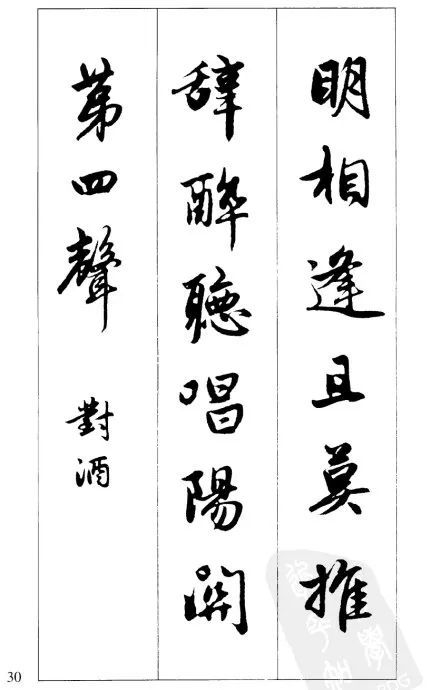 明相逢且莫推
辞醉聽唱陽關
第四聲
對酒
30